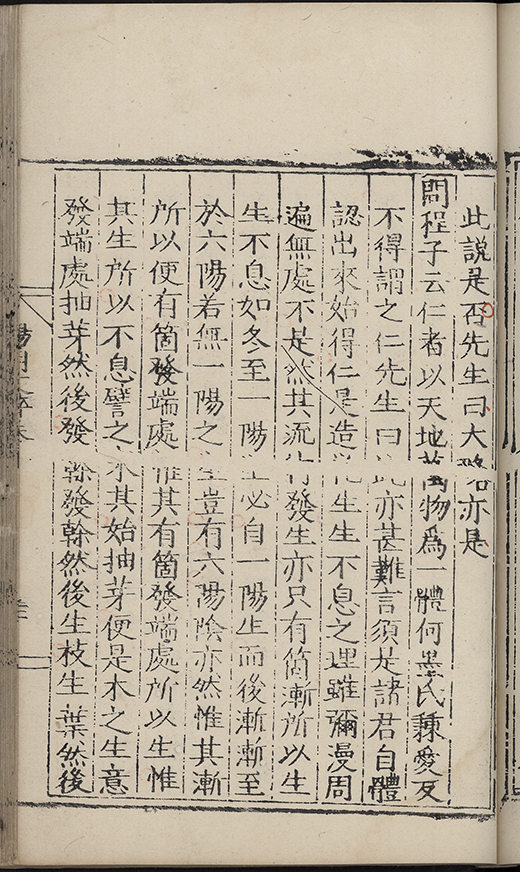 此說是否先生曰大略亦是
問程子云仁者以天地萬物為一體何墨氏兼愛反
不得謂之仁先生曰此亦甚難言須是諸君自體
認出來始得仁是造化生生不息之理雖彌漫周
遍無處不是然其流行發生亦只有箇漸所以生
生不息如冬至一陽生必自一陽生而後漸漸至
於六陽若無一陽之生豈有六陽陰亦然惟其漸
所以便有箇發端處惟其有箇發端處所以生惟
其生所以不息譬之木其始抽芽便是木之生意
發端處抽芽然後發榦發榦然後生枝生葉然後